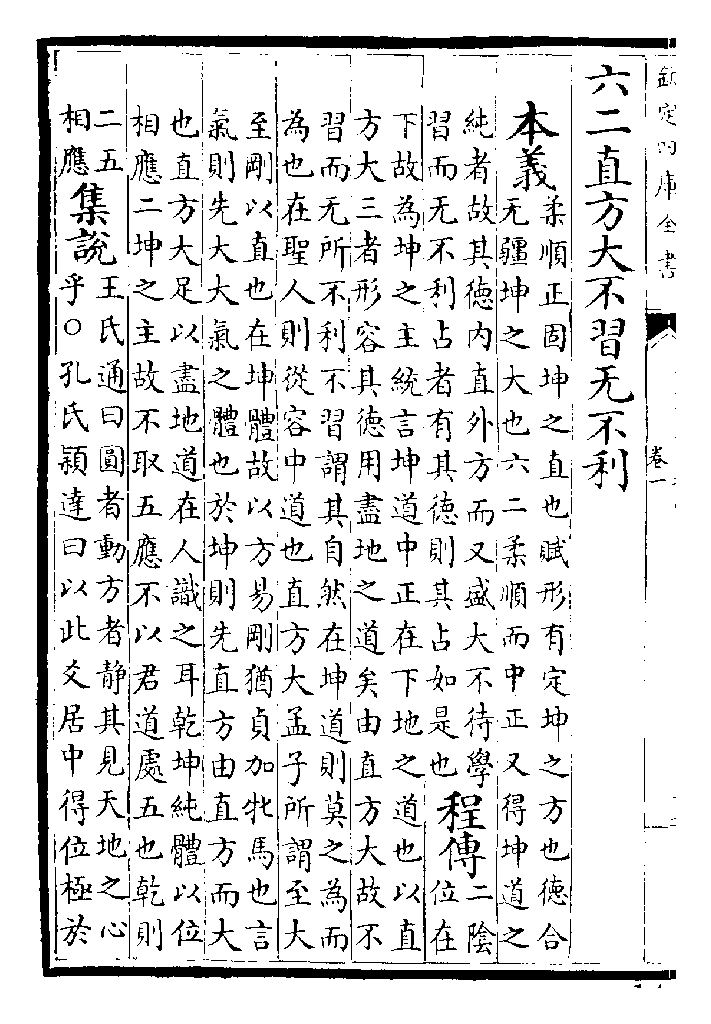 欽定四庫全書
卷一
六二直方大不習无不利
本義
柔順正固坤之直也賦形有定坤之方也德合
无疆坤之大也六二柔順而中正又得坤道之
純者故其德内直外方而又盛大不待學
習而无不利占者有其德則其占如是也
程傳
二陰
位在
下故為坤之主統言坤道中正在下地之道也以直
方大三者形容其德用盡地之道矣由直方大故不
習而无所不利不習謂其自然在坤道則莫之為而
為也在聖人則從容中道也直方大孟子所謂至大
至剛以直也在坤體故以方易剛猶貞加牝馬也言
氣則先大大氣之體也於坤則先直方由直方而大
也直方大足以盡地道在人識之耳乾坤純體以位
相應二坤之主故不取五應不以君道處五也乾則
二五
相應
集說
王氏通曰圓者動方者静其見天地之心
乎○孔氏穎達曰以此爻居中得位極於